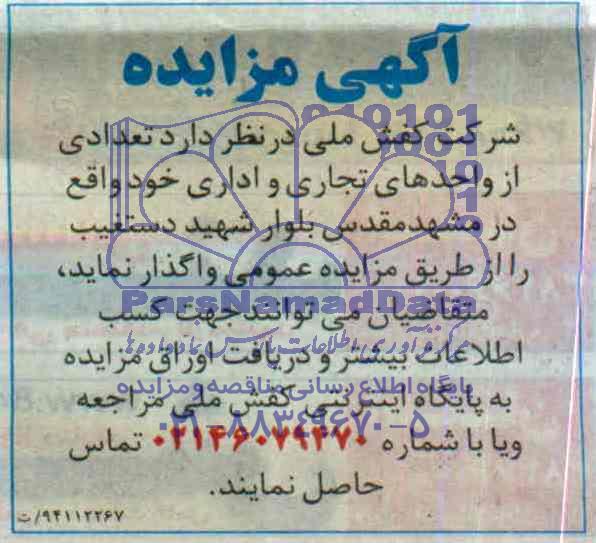 آگهی مزایده
شرکت کفش ملی در نظر دارد تعدادی
از واحدهای تجاری و اداری خود واقع
در مشهدمقدس بلوار شهید دستغیب
را از طریق مزایده عمومی واگذار نماید،
ParsNamadData
متقاضیان می توانند جهت کسب
اطلاعات بیشتر و دریافت اوراق مزایده
پایگاه اطلاع رسانی مناقصه و مزایده
به پایگاه اینترنتی کفش ملی مراجعه
۰۲۱-۸۸۳۴۹۶۷۰-۵
ویا با شماره ۰۲۱۴۶۰۷۹۴۷۰ تماس
حاصل نمایند.
۹۴۱۱۲۲۶۷/ت